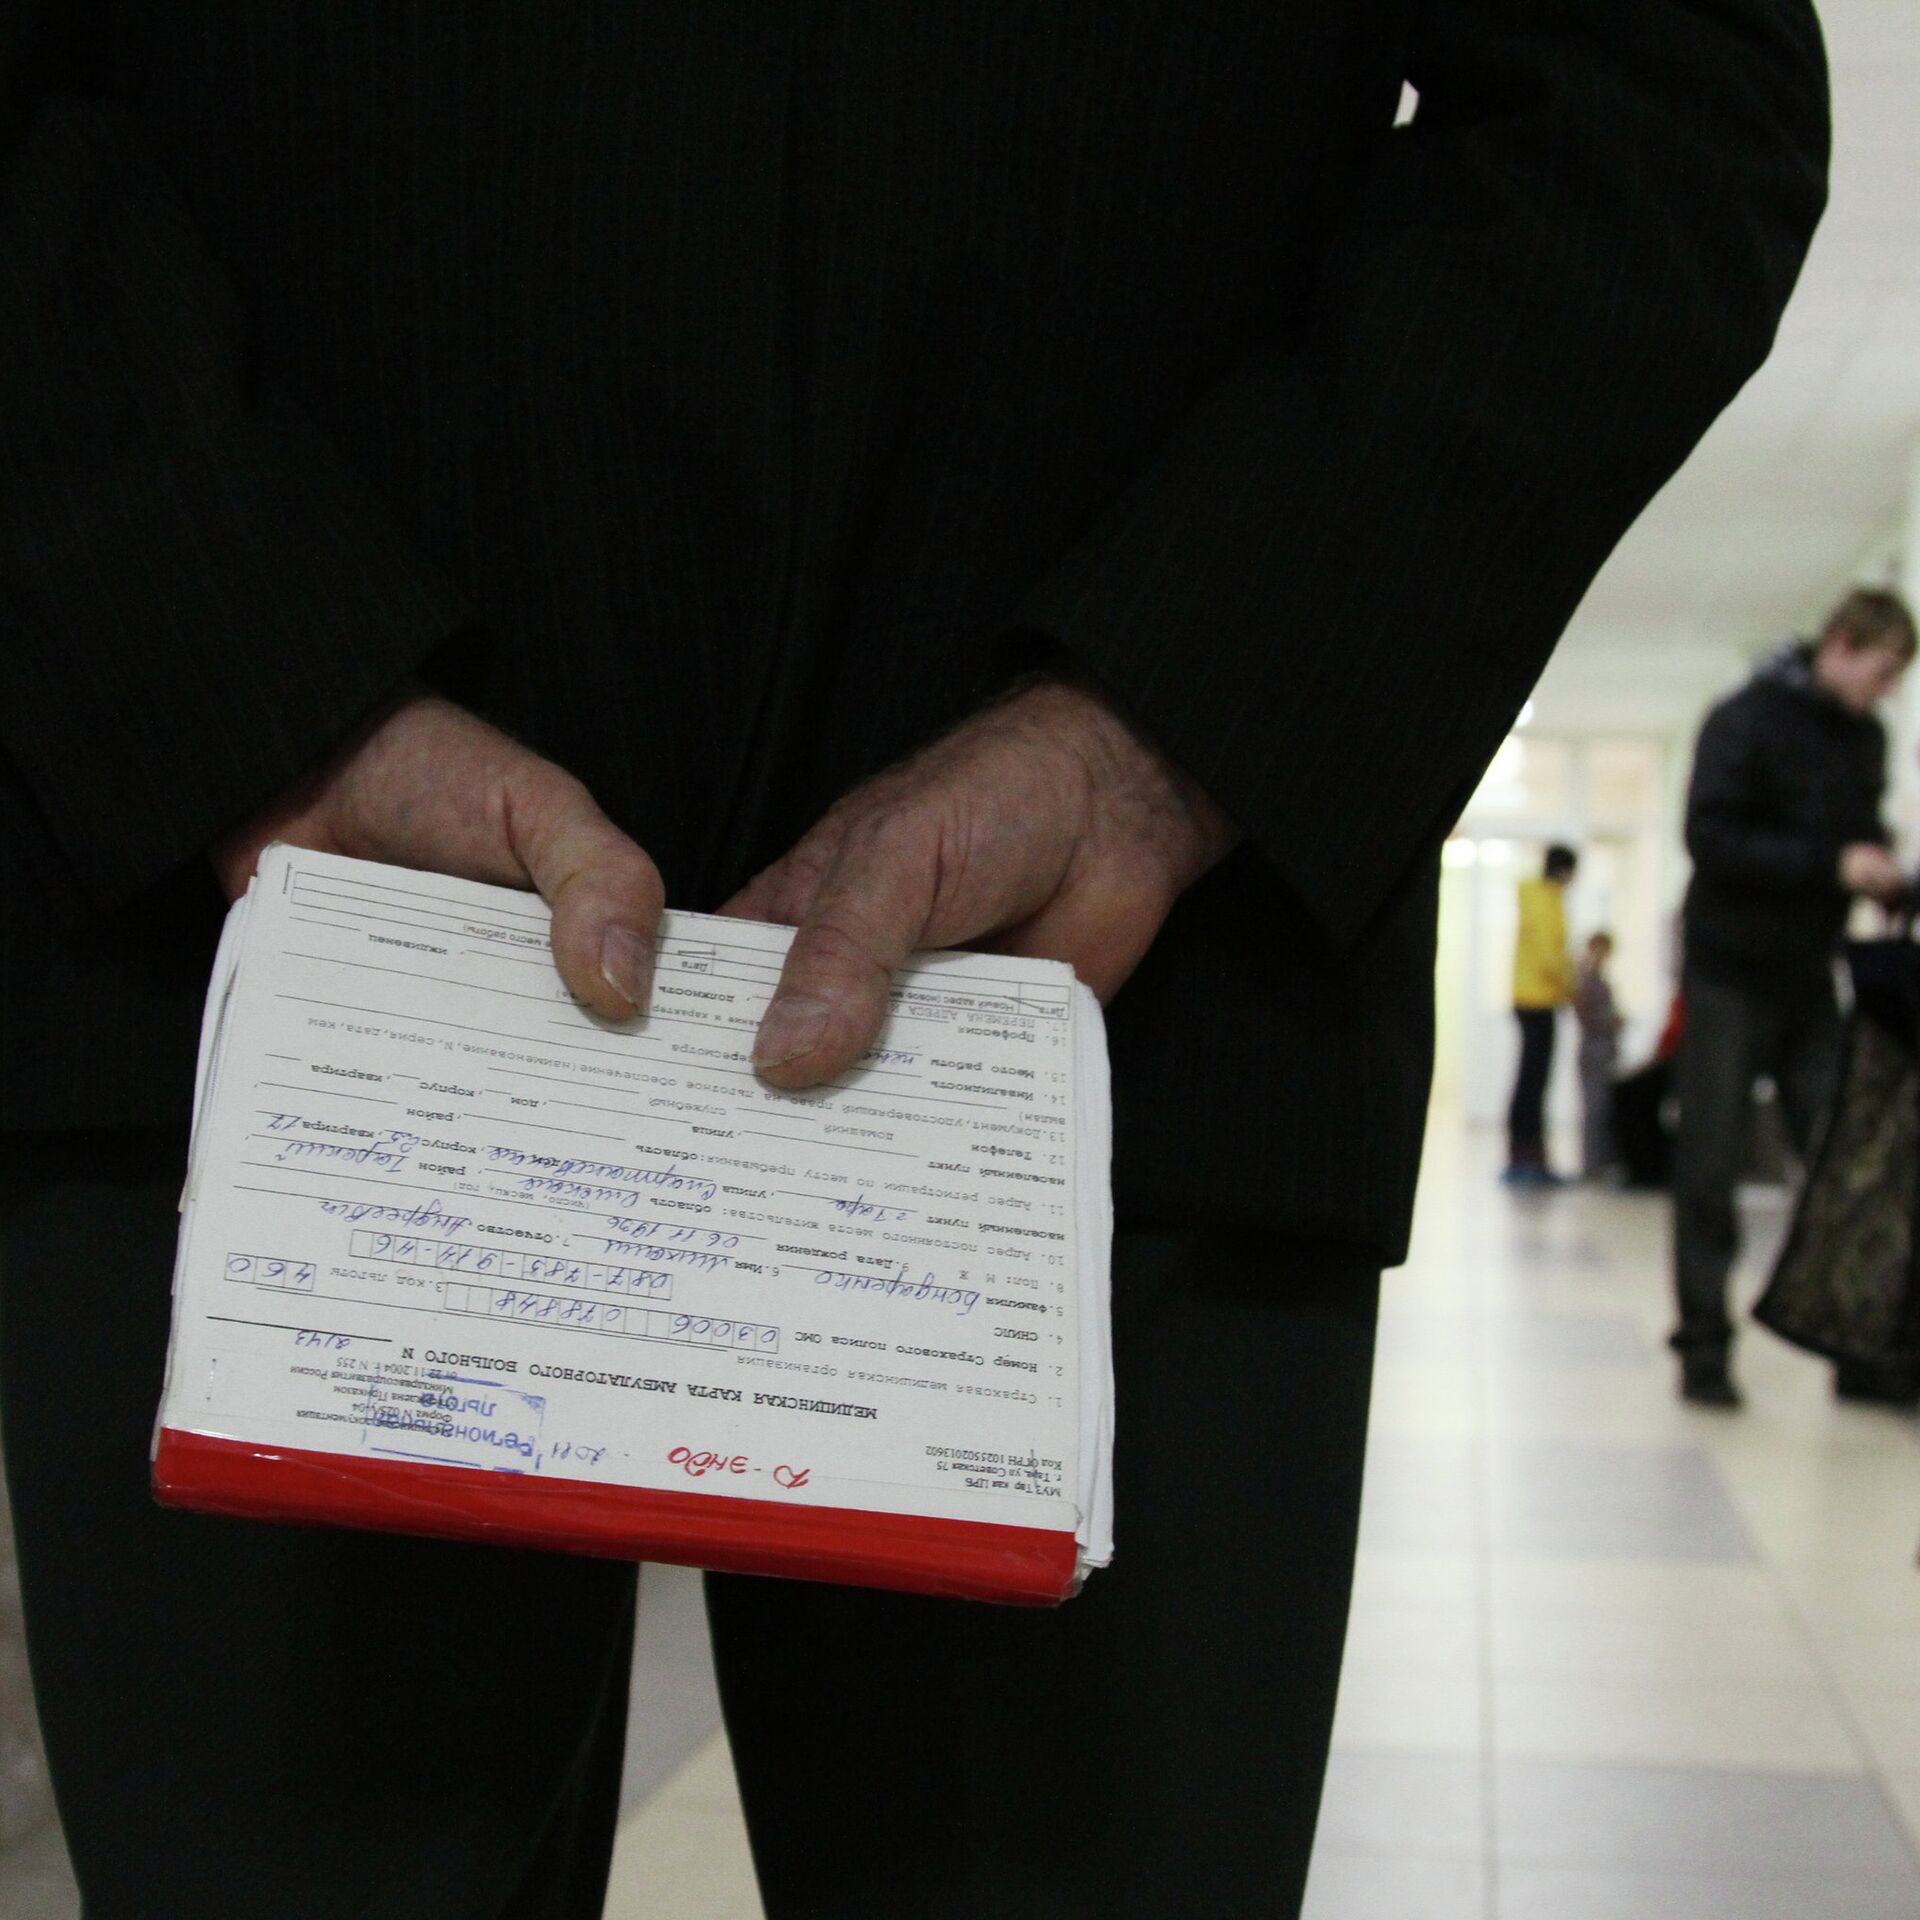 МУЗ Тар кая ЦРБ
г. Тара, ул Советская 75
Код ОГРН 1025502013602
Д-эндо
2011
Региональная
льгота
Форма N 025/у-04
Минздравсоцразвития России
от 22.11.2004 г. N 255
МЕДИЦИНСКАЯ КАРТА АМБУЛАТОРНОГО БОЛЬНОГО N 2143
1. Страховая медицинская организация
2. Номер Страхового полиса ОМС 03006 078848 3. код льготы 460
4. СНИЛС 087-783-914-46
5. Фамилия Бондаренко 6. Имя Михаил 7. Отчество Андреевич
8. Пол: М Ж 9. Дата рождения 06.11 1936 (число, месяц, год)
10. Адрес постоянного места жительства: область Омская, район Тарский
населенный пункт г. Тара, улица Спартаковская, корпус, квартира 17
11. Адрес регистрации по месту пребывания: область, район
населенный пункт, улица, дом, корпус, квартира
12. Телефон домашний служебный
13. Документ, удостоверяющий право на льготное обеспечение (наименование, N, серия, дата, кем
выдан)
14. Инвалидность пересмотра
15. Место работы
16. Профессия, должность, иждивенец
17. ПЕРЕМЕНА АДРЕСА И
Дата Новый адрес (новое ме Дата е место работы)